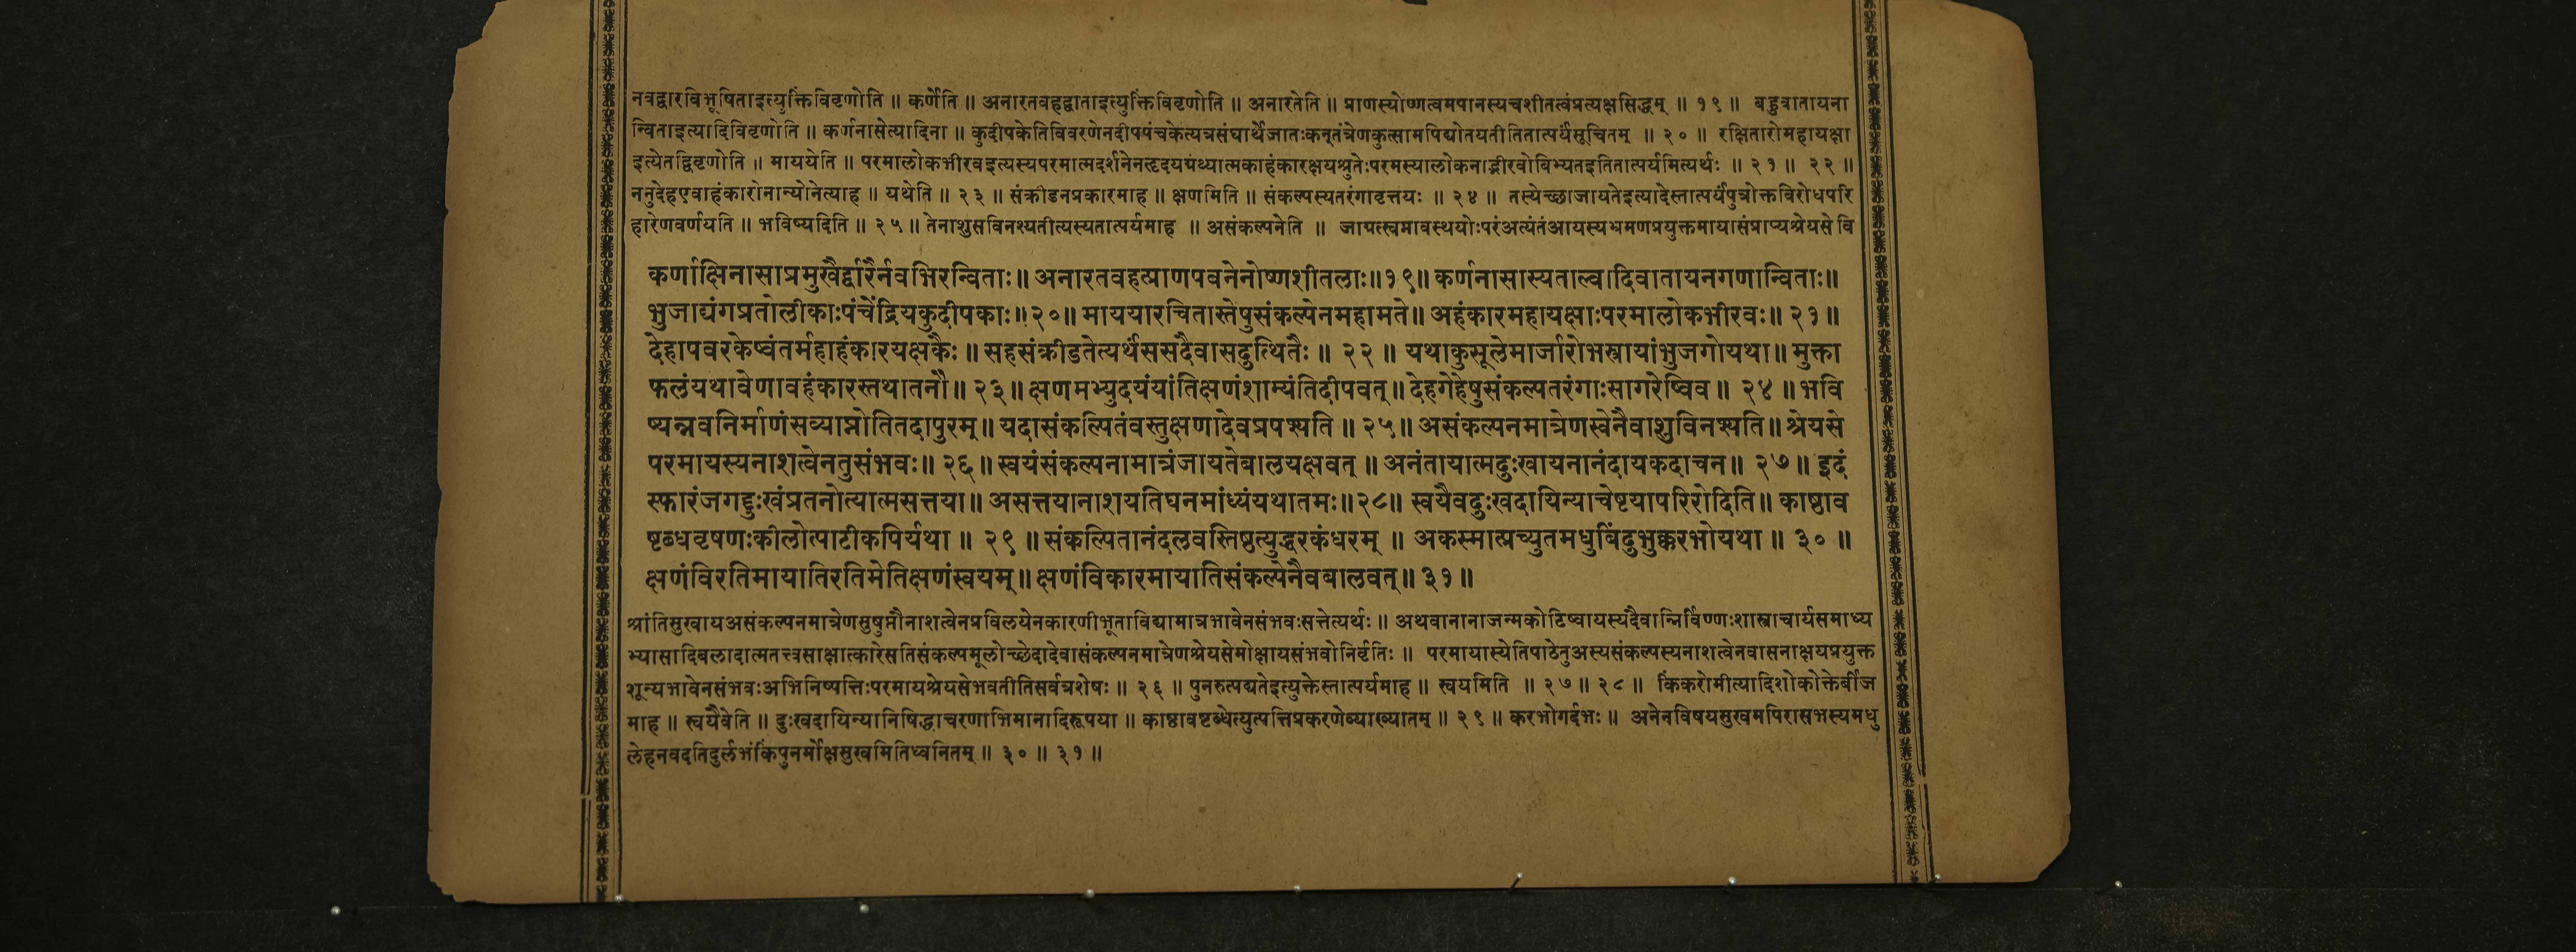 नवद्वारविभूषिताइत्युक्तिंविवृणोति ॥ कर्णेति ॥ अनारतवहद्वाताइत्युक्तिंविवृणोति ॥ अनारतेति ॥ प्राणस्योष्णत्वमपानस्यचशीतत्वंप्रत्यक्षसिद्धम् ॥ १९ ॥ बहुवातायना
न्विताइत्यादिविवृणोति ॥ कर्णनासेत्यादिना ॥ कुदीपकेतिविवरणेनदीपपंचकेत्यत्रसंघार्थेजातःकन्तंत्रेणकुत्सामपिद्योतयतीतितात्पर्यंसूचितम् ॥ २० ॥ रक्षितारोमहायक्षा
इत्येतद्विवृणोति ॥ माययेति ॥ परमालोकभीरवइत्यस्यपरमात्मदर्शनेनहृदयग्रंथ्यात्मकाहंकारक्षयश्रुतेःपरमस्यालोकनाद्भीरवोबिभ्यतइतितात्पर्यमित्यर्थः ॥ २१ ॥ २२ ॥
ननुदेहएवाहंकारोनान्योनेत्याह ॥ यथेति ॥ २३ ॥ संक्रीडनप्रकारमाह ॥ क्षणमिति ॥ संकल्पस्यतरंगावृत्तयः ॥ २४ ॥ तस्येच्छाजायतेइत्यादेस्तात्पर्यंपुत्रोक्तविरोधपरि
हारेणवर्णयति ॥ भविष्यदिति ॥ २५ ॥ तेनाशुसविनश्यतीत्यस्यतात्पर्यमाह ॥ असंकल्पनेति ॥ जाग्रत्स्वप्नावस्थयोःपरंअत्यंतंआयस्यभ्रमणप्रयुक्तमायासंप्राप्यश्रेयसे वि
कर्णाक्षिनासाप्रमुखैर्द्वारैर्नवभिरन्विताः ॥ अनारतवहत्प्राणपवनेनोष्णशीतलाः ॥१९॥ कर्णनासास्यताल्वादिवातायनगणान्विताः ॥
भुजाद्यंगप्रतोलीकाःपंचेंद्रियकुदीपकाः ॥२०॥ माययारचितास्तेषुसंकल्पेनमहामते ॥ अहंकारमहायक्षाःपरमालोकभीरवः ॥ २१ ॥
देहापवरकेष्वंतर्महाहंकारयक्षकैः ॥ सहसंक्रीडतेत्यर्थंससदैवासदुत्थितैः ॥ २२ ॥ यथाकुसूलेमार्जारोभस्त्रायांभुजगोयथा ॥ मुक्ता
फलंयथावेणावहंकारस्तथातनौ ॥ २३ ॥ क्षणमभ्युदयंयांतिक्षणंशाम्यंतिदीपवत् ॥ देहगेहेषुसंकल्पतरंगाःसागरेष्विव ॥ २४ ॥ भवि
ष्यन्नवनिर्माणंसव्याप्नोतितदापुरम् ॥ यदासंकल्पितंवस्तुक्षणादेवप्रपश्यति ॥ २५ ॥ असंकल्पनमात्रेणस्वेनैवाशुविनश्यति ॥ श्रेयसे
परमायस्यनाशत्वेनतुसंभवः ॥ २६ ॥ स्वयंसंकल्पनामात्रंजायतेबालयक्षवत् ॥ अनंतायात्मदुःखायनानंदायकदाचन ॥ २७ ॥ इदं
स्फारंजगद्दुःखंप्रतनोत्यात्मसत्तया ॥ असत्तयानाशयतिघनमांध्यंयथातमः ॥२८॥ स्वयैवदुःखदायिन्याचेष्टयापरिरोदिति ॥ काष्ठाव
ष्टब्धवृषणःकीलोत्पाटीकपिर्यथा ॥ २९ ॥ संकल्पितानंदलवस्तिष्ठत्युद्धरकंधरम् ॥ अकस्मात्प्रच्युतमधुबिंदुभुक्करभोयथा ॥ ३० ॥
क्षणंविरतिमायातिरतिमेतिक्षणंस्वयम् ॥ क्षणंविकारमायातिसंकल्पेनैवबालवत् ॥ ३१ ॥
श्रांतिसुखायअसंकल्पनमात्रेणसुषुप्तौनाशत्वेनप्रविलयेनकारणीभूताविद्यामात्रभावेनसंभवःसत्तेत्यर्थः ॥ अथवानानाजन्मकोटिष्वायस्यदैवान्निर्विण्णःशास्त्राचार्यसमाध्य
भ्यासादिबलादात्मतत्त्वसाक्षात्कारेसतिसंकल्पमूलोच्छेदादेवासंकल्पनमात्रेणश्रेयसेमोक्षायसंभवोनिर्वृतिः ॥ परमायास्येतिपाठेतुअस्यसंकल्पस्यनाशत्वेनवासनाक्षयप्रयुक्त
शून्यभावेनसंभवःअभिनिष्पत्तिःपरमायश्रेयसेभवतीतिसर्वत्रशेषः ॥ २६ ॥ पुनरुत्पद्यतेइत्युक्तेस्तात्पर्यमाह ॥ स्वयमिति ॥ २७ ॥ २८ ॥ किंकरोमीत्यादिशोकोक्तेर्बीज
माह ॥ स्वयैवेति ॥ दुःखदायिन्यानिषिद्धाचरणाभिमानादिरूपया ॥ काष्ठावष्टब्धेत्युत्पत्तिप्रकरणेव्याख्यातम् ॥ २९ ॥ करभोगर्दभः ॥ अनेनविषयसुखमपिरासभस्यमधु
लेहनवदतिदुर्लभंकिंपुनर्मोक्षसुखमितिध्वनितम् ॥ ३० ॥ ३१ ॥